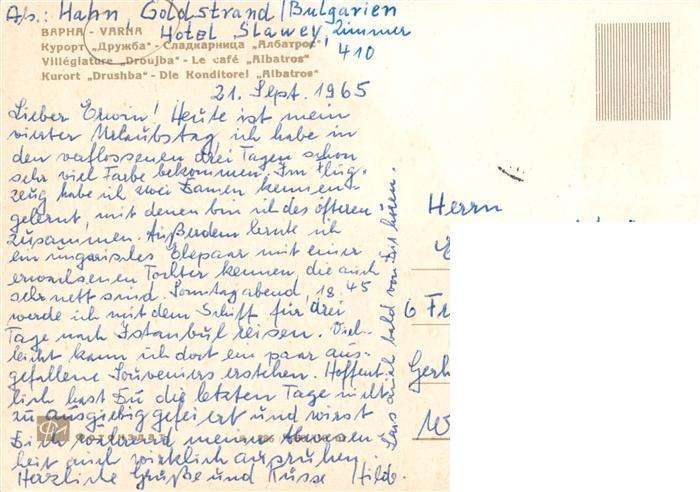 Ap.: Hahn, Goldstrand / Bulgarien
Hotel Slawey, Zimmer
410
ВАРНА - VARNA
Курорт „Дружба“ - Сладкарница „Албатрос“
Villégiature „Droujba“ - Le café „Albatros“
Kurort „Drushba“ - Die Konditorei „Albatros“
21. Sept. 1965
Lieber Erwin! Heute ist mein
vierter Urlaubstag, ich habe in
den verflossenen drei Tagen schon
sehr viel Farbe bekommen. Im Flug-
zeug habe ich zwei Damen kennen-
gelernt, mit denen bin ich des öfteren
zusammen. Außerdem lernte ich
ein ungarisches Ehepaar mit einer
erwachsenen Tochter kennen, die auch
sehr nett sind. Sonntagabend, 18.45
werde ich mit dem Schiff für drei
Tage nach Istanbul reisen. Viel-
leicht kann ich dort ein paar aus-
gefallene Souveniers erstehen. Hoffent-
lich hast Du die letzten Tage nicht
zu ausgiebig gefeiert und wirst
Dich während meiner Abwesen-
heit auch wirklich ausruhen.
Herzliche Grüße und Küsse Hilde.
Lass auch bald von Dir hören.
Herrn
6 Fr
Gerh